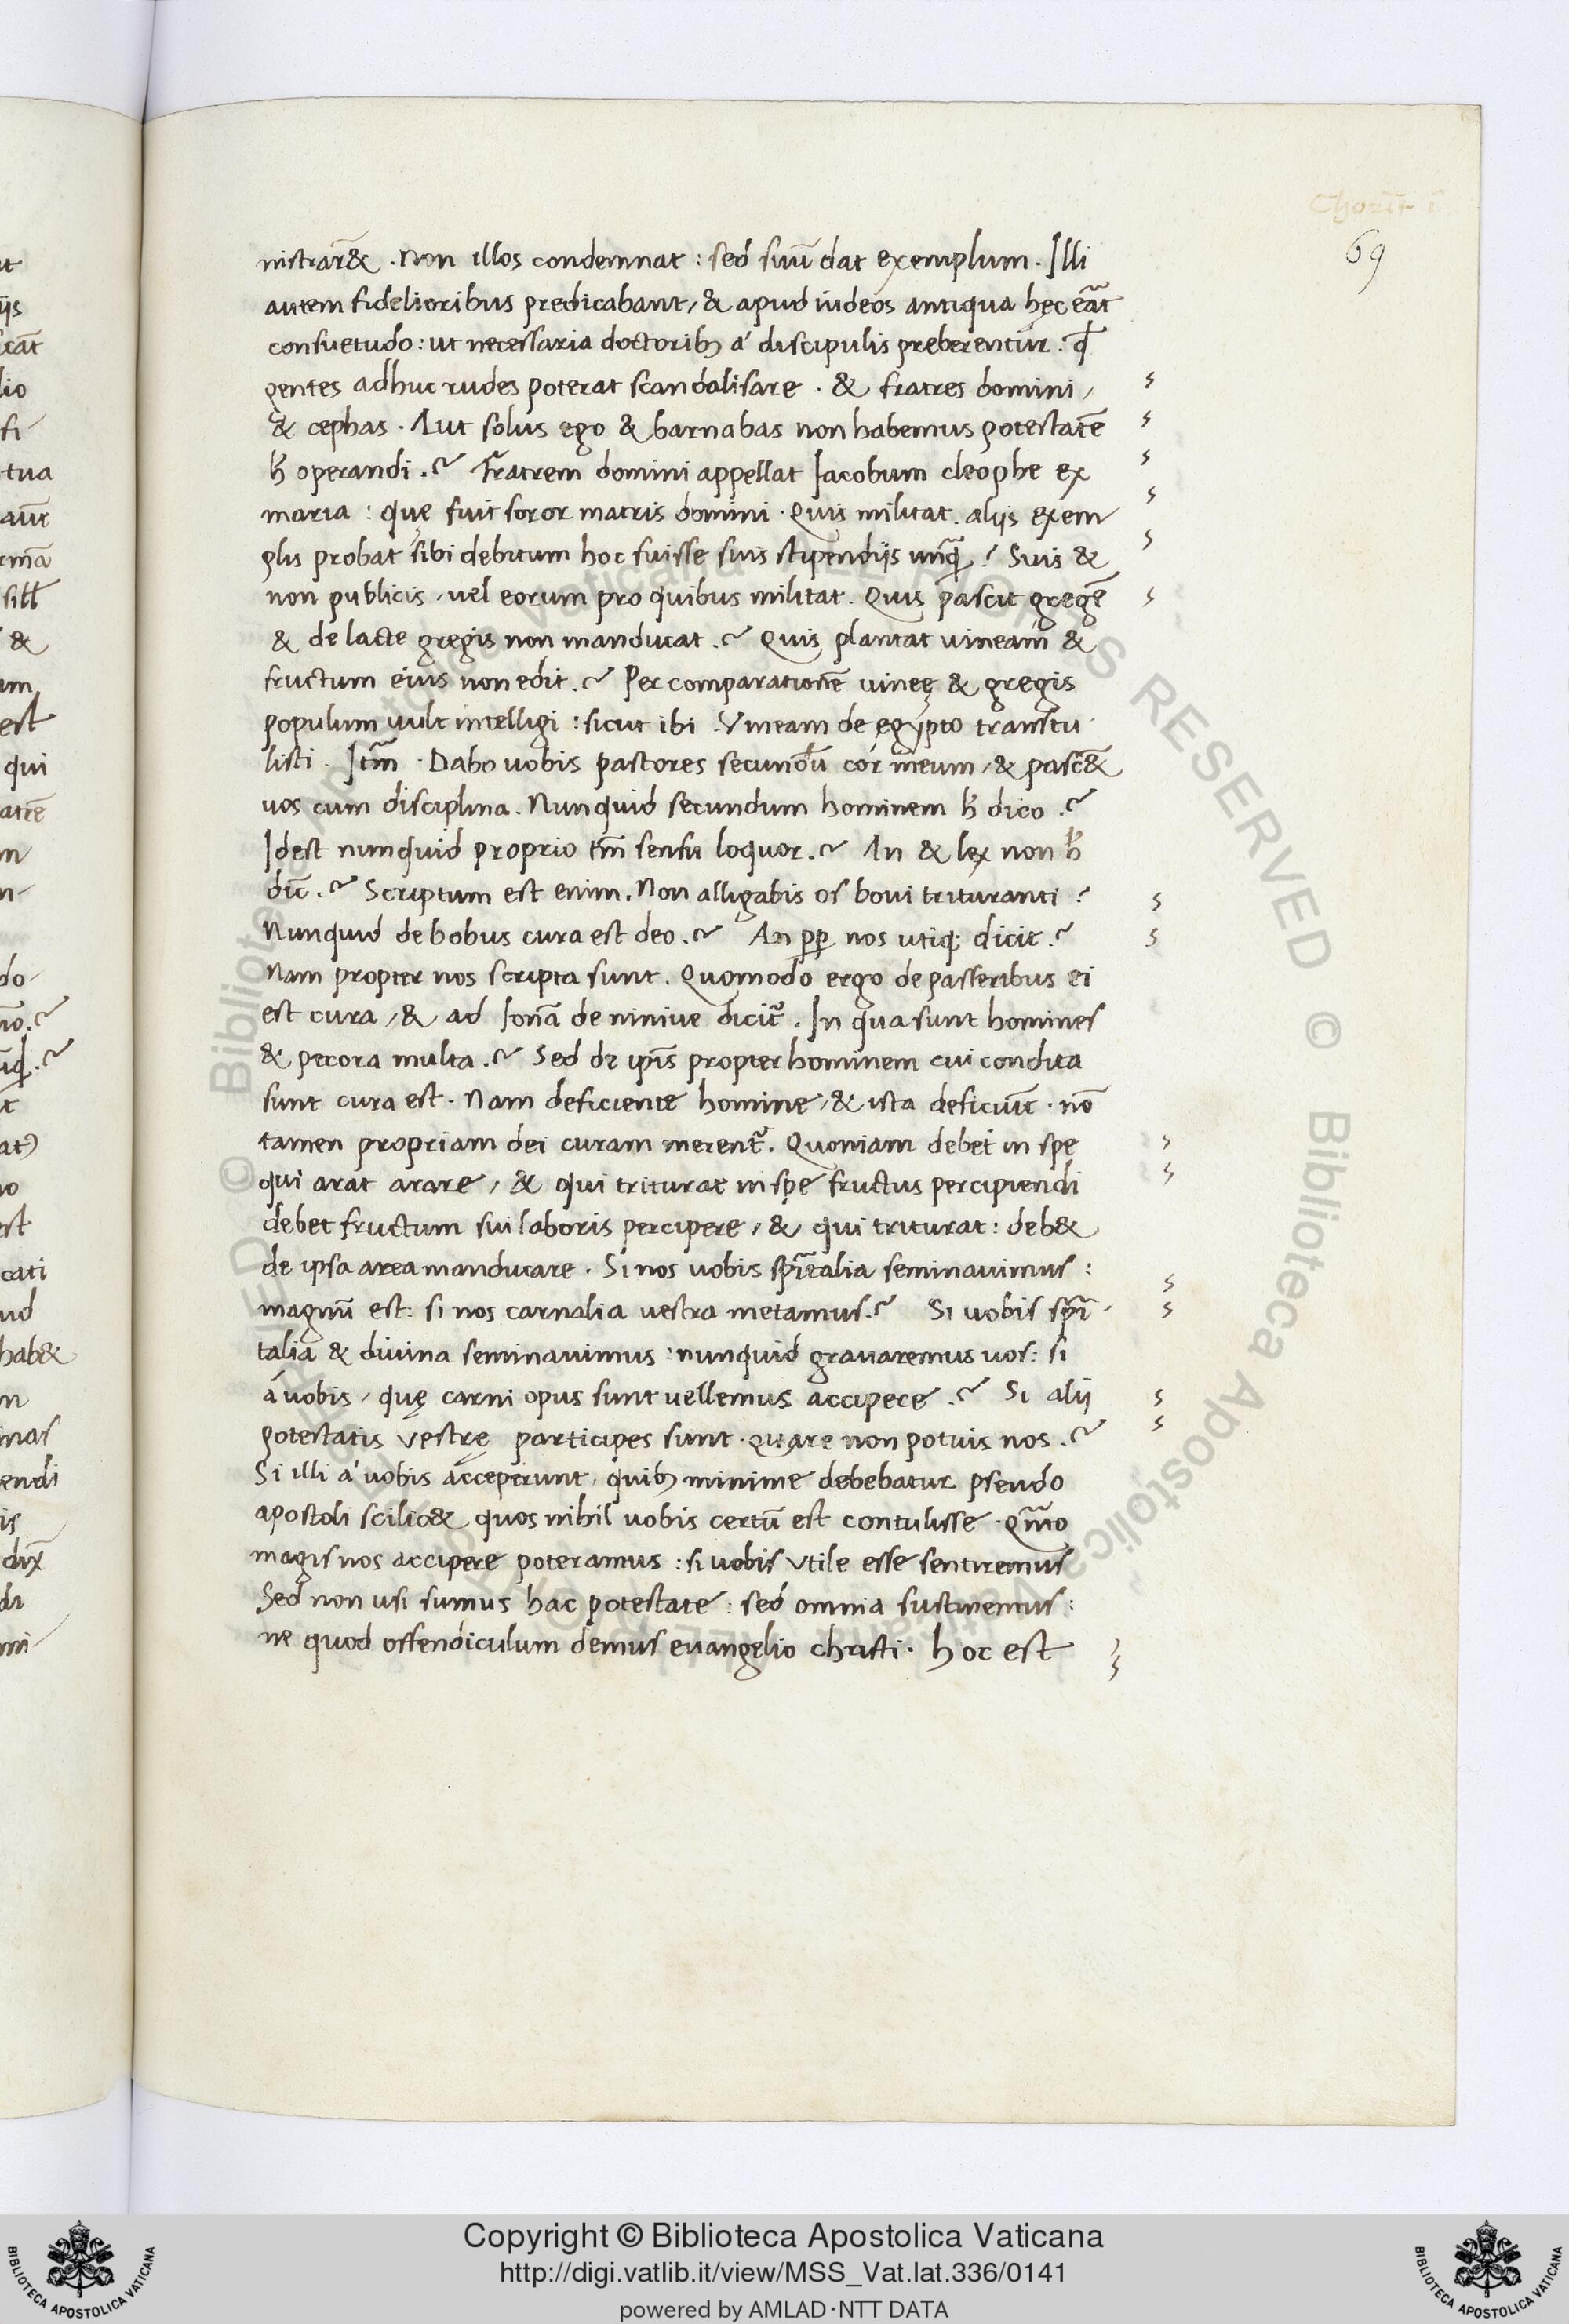 Chorīt· ī
69
nistrar̄& . Non illos condemnat : sed suū dat exemplum . Illi
autem fidelioribus predicabant, & apud iudeos antiqua hęc erāt
consuetudo : ut necessaria doctorib; a' discipulis preberentur : qđ
gentes adhuc rudes poterat scandalisare . & fratres domini,
& cephas . Aut solus ego & barnabas non habemus potestatē
h̄ operandi .? Fratrem domini appellat Iacobum cleophe ex
maria : quę fuit soror matris domini . Quis militat . aliis exem
plis probat sibi debitum hoc fuisse suis stipendijs unq̄ ? Suis &
non publicis, uel eorum pro quibus militat . Quis pascit gregē
& de lacte gregis non manducat .? Quis plantat uineam &
fructum eius non edit .? Per comparationē uineę & gregis
populum uult intelligi : sicut ibi . Vineam de egypto transtu
listi . Itm̄ . Dabo uobis pastores secundū cor meum, & pasc̄&
uos cum disciplina . Nunquid secundum hominem h̄ dico .?
Idest nunquid proprio tm̄ sensu loquor .? An & lex non h̄
dic̄ .? Scriptum est enim . Non alligabis os boui trituranti ?
Nunquid de bobus cura est deo .? An pp̄ nos utiq; dicit .?
Nam propter nos scripta sunt . Quomodo ergo de passeribus ei
est cura, & ad Ionā de niniue dicit̄ . In qua sunt homines
& pecora multa .? Sed de ip̄is propter hominem cui condita
sunt cura est . Nam deficiente homine, & ista deficiūt . nō
tamen propriam dei curam merent̄ . Quoniam debet in spe
qui arat arare, & qui triturat in spe fructus percipiendi
debet fructum sui laboris percipere, & qui triturat : deb&
de ipsa area manducare . Si nos uobis sp̄italia seminauimus :
magnū est : si nos carnalia vestra metamus .? Si uobis sp̄i
talia & diuina seminauimus : nunquid grauaremus uos : si
a' uobis, quę carni opus sunt uellemus accipere .? Si alij
potestatis vestrę participes sunt . quare non potuis nos .?
Si illi a' uobis acceperunt, quib; minime debebatur pseudo
apostoli scilic& quos nihil uobis certū est contulisse . Qm̄o
magis nos accipere poteramus : si uobis vtile esse sentiremus
Sed non usi sumus hac potestate : sed omnia sustinemus :
ne quod offendiculum demus euangelio christi . hoc est
Copyright © Biblioteca Apostolica Vaticana
http://digi.vatlib.it/view/MSS_Vat.lat.336/0141
powered by AMLAD·NTT DATA